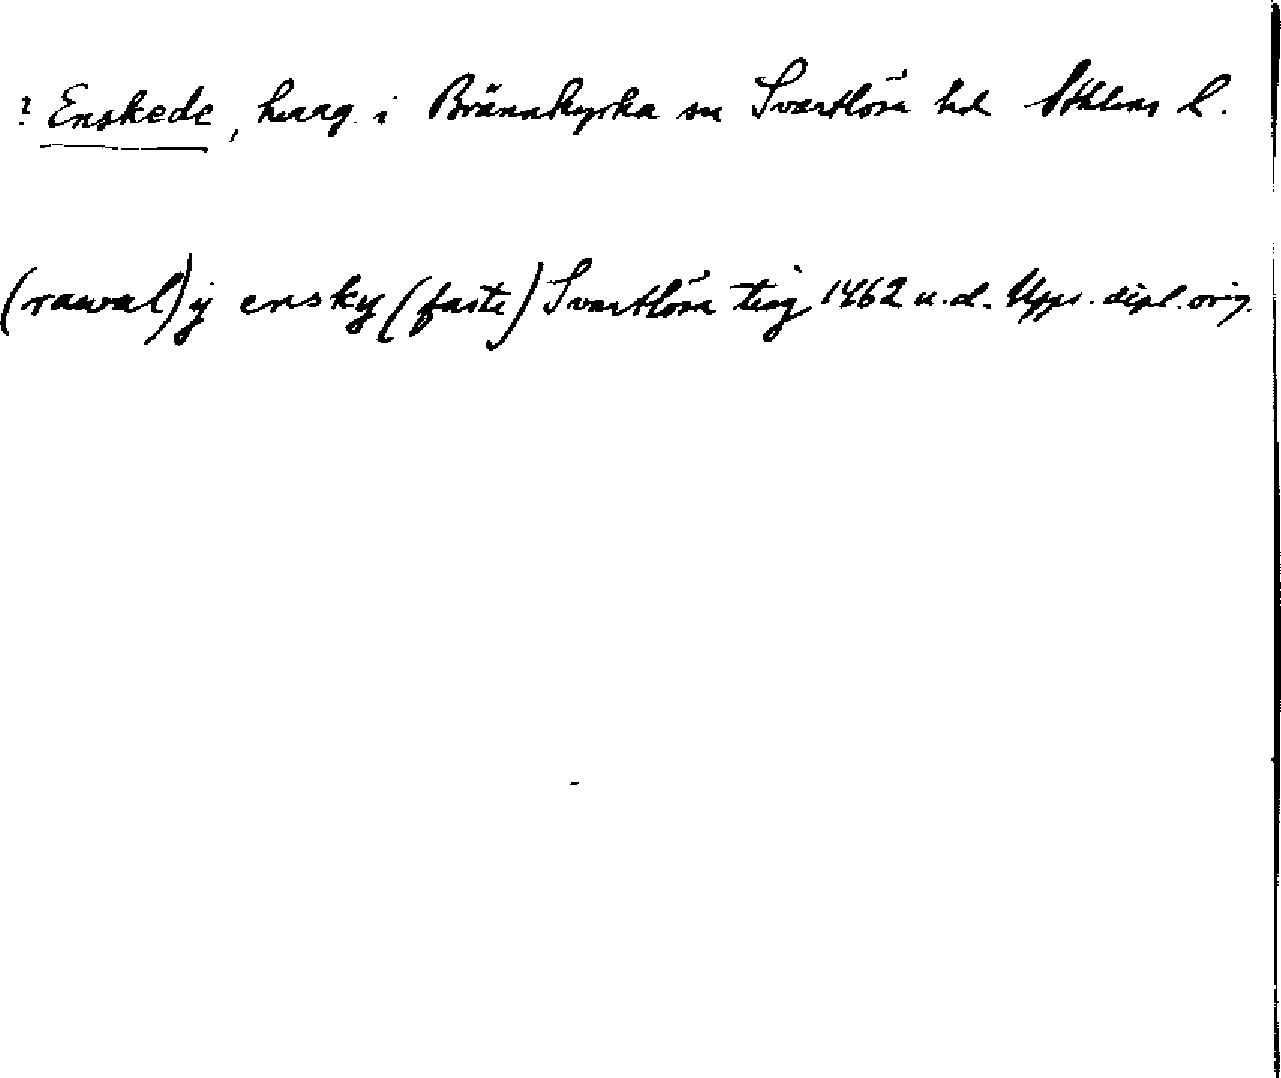 ? Enskede, herrg. i Brännkyrka sn Svartlösa hd Sthlms l.
(rawal) ij ensky (faste) Svartlösa ting 1462 u.d. Upps. dipl. orig.